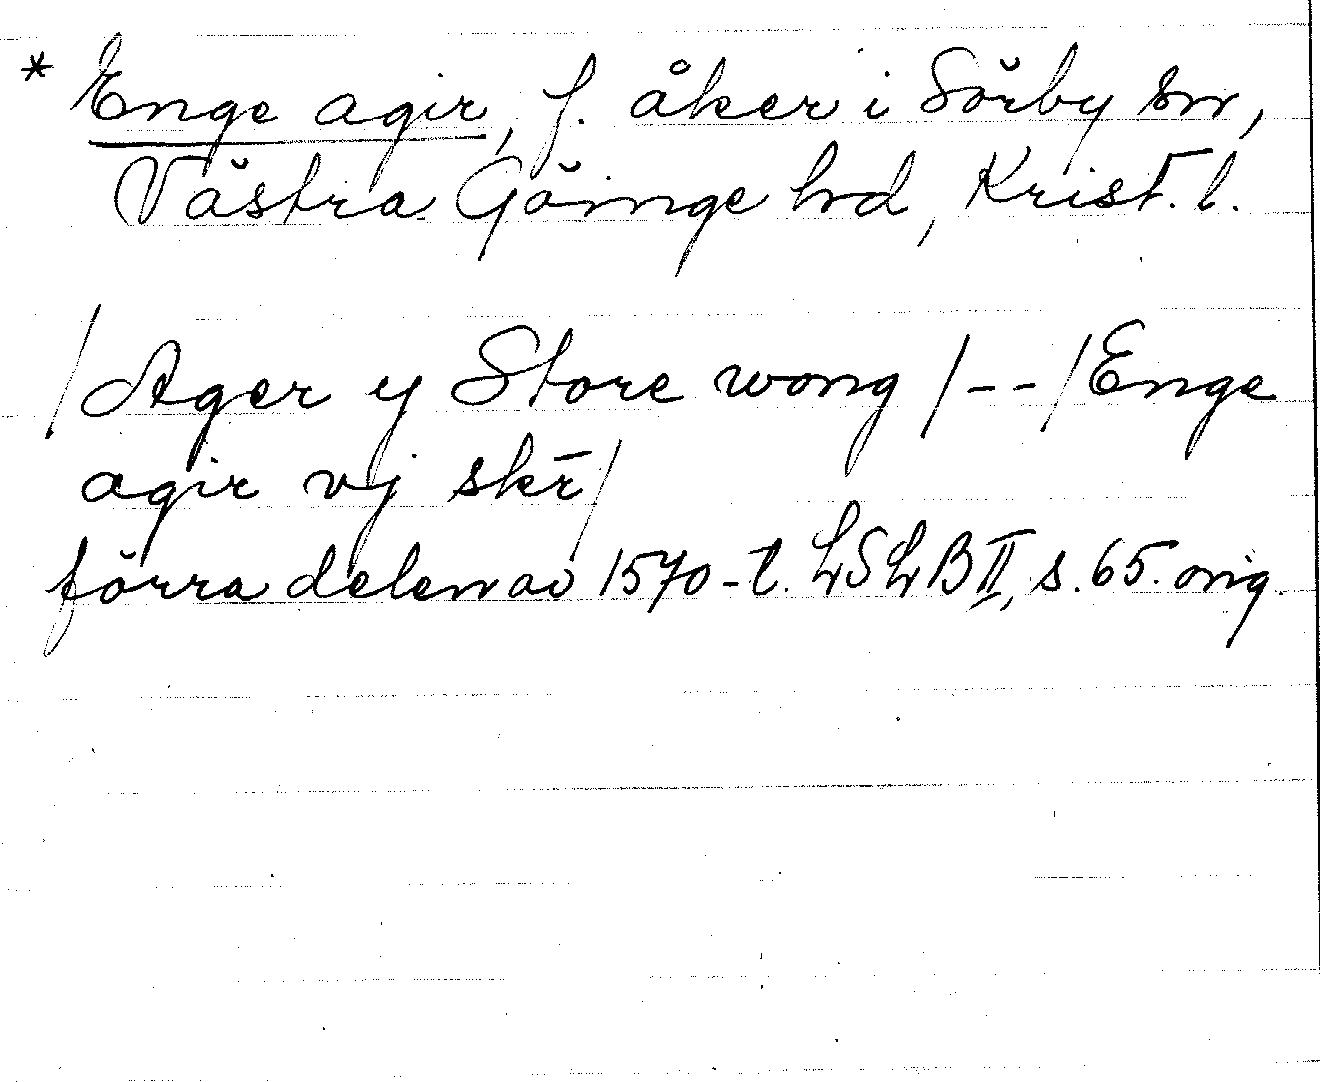 * Enge agir, f. åker i Sörby sn,
Västra Göinge hd, Krist. l.
/Ager y Store wong/--/Enge
agir vj skr̄/
förra delen av 1570-t. LSLB II, s. 65. orig.